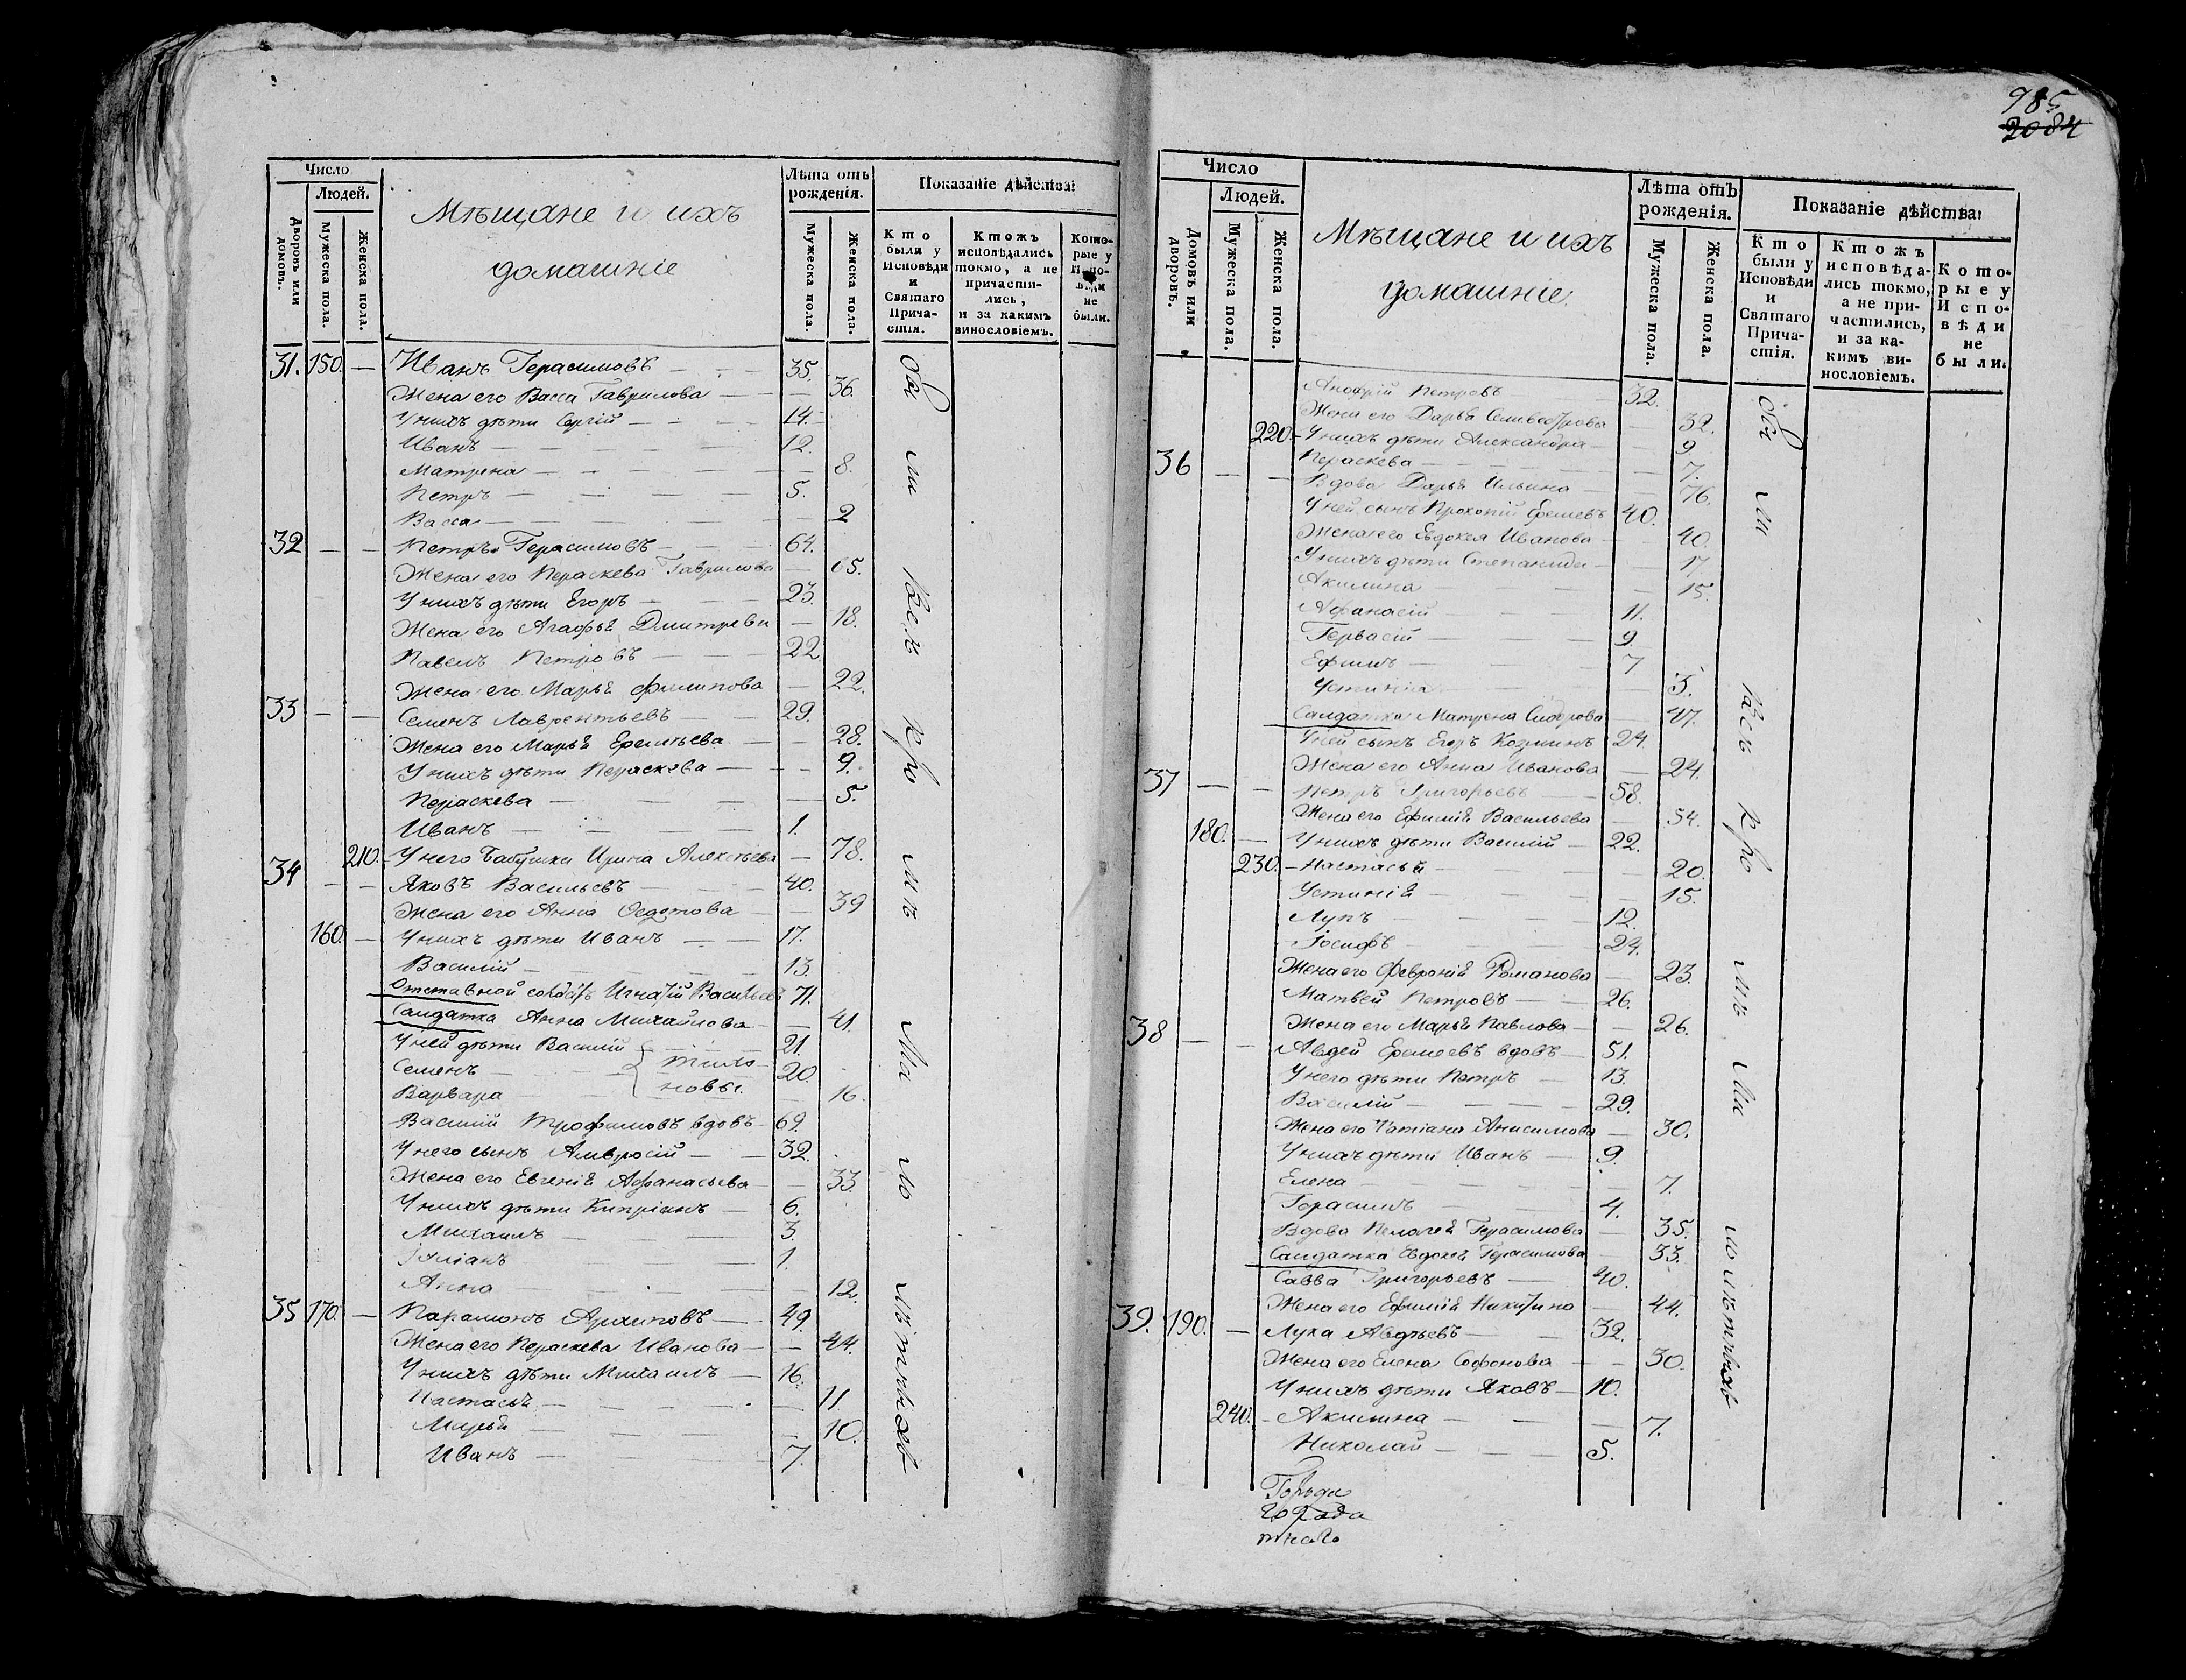 985
2084
Число
Людей.
Дворовъ или домовъ.
Мужеска пола.
Женска пола.
Мѣщане и ихъ
домашніе
Лѣта отъ рожденія.
Мужеска пола.
Женска пола.
Показаніе дѣйства:
Кто были у Исповѣди и Святаго Причастія.
Ктожъ исповѣдались токмо, а не причастились, и за какимъ винословіемъ.
Которые у Исповѣди не были.
31. 150. — Иванъ Герасимовъ — 35.
Жена его Васса Гаврилова — 36.
У нихъ дѣти Сергій — 14.
Иванъ — 12.
Матрена — 8.
Петръ — 5.
Васса — 2
32 — — Петръ Герасимовъ — 64.
Жена его Пераскева Гаврилова — 65.
У нихъ дѣти Егоръ — 23.
Жена его Агафья Дмитрева — 18.
Павелъ Петровъ — 22
Жена его Марья Филипова — 22.
33 — — Семенъ Лаврентьевъ — 29.
Жена его Марья Еремѣева — 28.
У нихъ дѣти Пераскева — 9.
Пераскева — 5.
Иванъ — 1.
210. У него бабушка Ирина Алексѣева — 78.
34 — — Яковъ Васильевъ — 40.
Жена его Анна Федотова — 39
160. — У нихъ дѣти Иванъ — 17.
Василій — 13.
Отставной солдатъ Игнатій Васильевъ 71.
Салдатка Анна Михайлова — 41.
У ней дѣти Василій — 21.
Семенъ — 20.
Варвара — 16.
Василій Трофимовъ вдовъ — 69.
У него сынъ Амвросій — 32.
Жена его Евгенія Афанасьева — 33.
У нихъ дѣти Кипріанъ — 6.
Михаилъ — 3.
Іуліанъ — 1.
Анна — 12.
35 170. — Парамонъ Архиповъ — 49.
Жена его Пераскева Иванова — 44.
У нихъ дѣти Михаилъ — 16.
Настасья — 11.
Марья — 10.
Иванъ — 7.
Число
Людей.
Домовъ или дворовъ.
Мужеска пола.
Женска пола.
Мѣщане и ихъ
домашніе
Лѣта отъ рожденія.
Мужеска пола.
Женска пола.
Показаніе дѣйства:
Кто были у Исповѣди и Святаго Причастія.
Ктожъ исповѣдались токмо, а не причастились, и за какимъ винословіемъ.
Которые у Исповѣди не были.
Анофрій Петровъ 32.
Жена его Дарья Селивестрова — 32.
220. У нихъ дѣти Александра — 9
Пераскева — 7.
36 — — Вдова Дарья Ильина — 76.
У ней сынъ Прокопій Еремевъ 40.
Жена его Евдокея Иванова — 40.
У нихъ дѣти Степанида — 17
Акилина — 15.
Афанасій — 11.
Гервасій — 9
Ефимъ — 7
Устинія — 3.
Салдатка Матрена Сидорова — 47.
У ней сынъ Егоръ Козминъ 24.
Жена его Анна Иванова — 24.
37 — — Петръ Григорьевъ — 58.
Жена его Ефимія Васильева — 54.
180. — У нихъ дѣти Василій — 22.
230. — Настасья — 20.
Устинія — 15.
Лупъ — 12.
Іосифъ — 24.
Жена его Февронія Романова — 23.
Матвей Петровъ — 26.
Жена его Марья Павлова — 26.
38 — — Авдей Еремеевъ вдовъ — 51.
У него дѣти Петръ — 13.
Василій — 29.
Жена его Татіана Анисимова — 30.
У нихъ дѣти Иванъ — 9.
Елена — 7.
Герасимъ — 4.
Вдова Пелагея Герасимова — 35.
Салдатка Евдокея Герасимова — 33.
Савва Григорьевъ — 40.
Жена его Ефимія Никитина — 44.
39. 190. — Лука Авдѣевъ — 32.
Жена его Елена Софонова — 30.
У нихъ дѣти Яковъ — 10.
240. — Акилина — 7.
Николай — 5.
Города